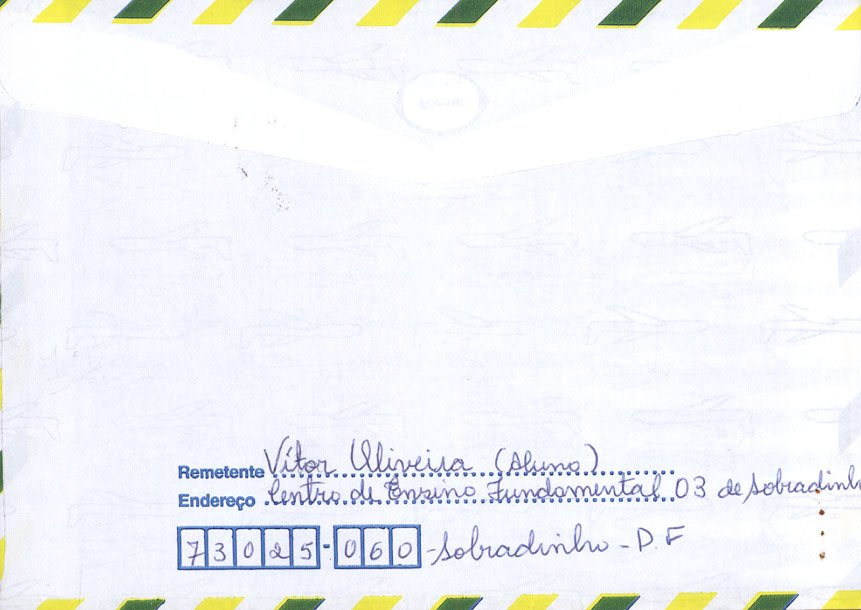 Remetente Vítor Oliveira (Aluno)
Endereço Centro de Ensino Fundamental 03 de Sobradinho
73025-060 - Sobradinho - D.F